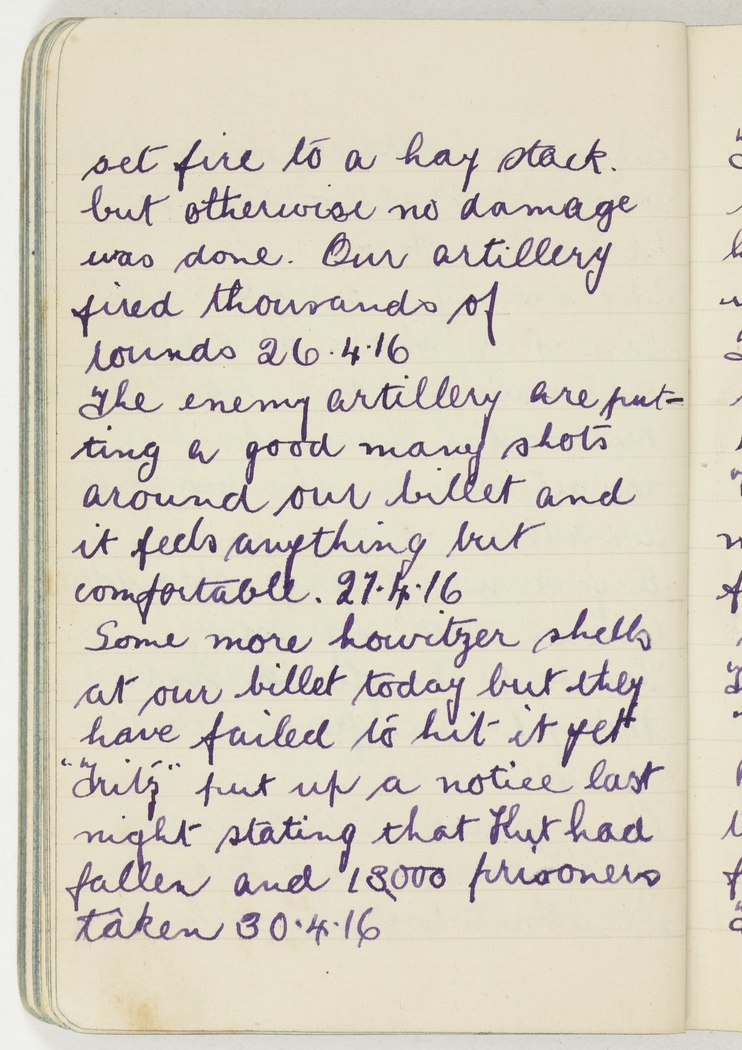 set fire to a hay stack.
but otherwise no damage
was done. Our artillery
fired thousands of
rounds 26.4.16
The enemy artillery are put-
ting a good many shots
around our billet and
it feels anything but
comfortable. 27.4.16
Some more howitzer shells
at our billet today but they
have failed to hit it yet
"Fritz" put up a notice last
night stating that Kut had
fallen and 13,000 prisoners
taken 30.4.16